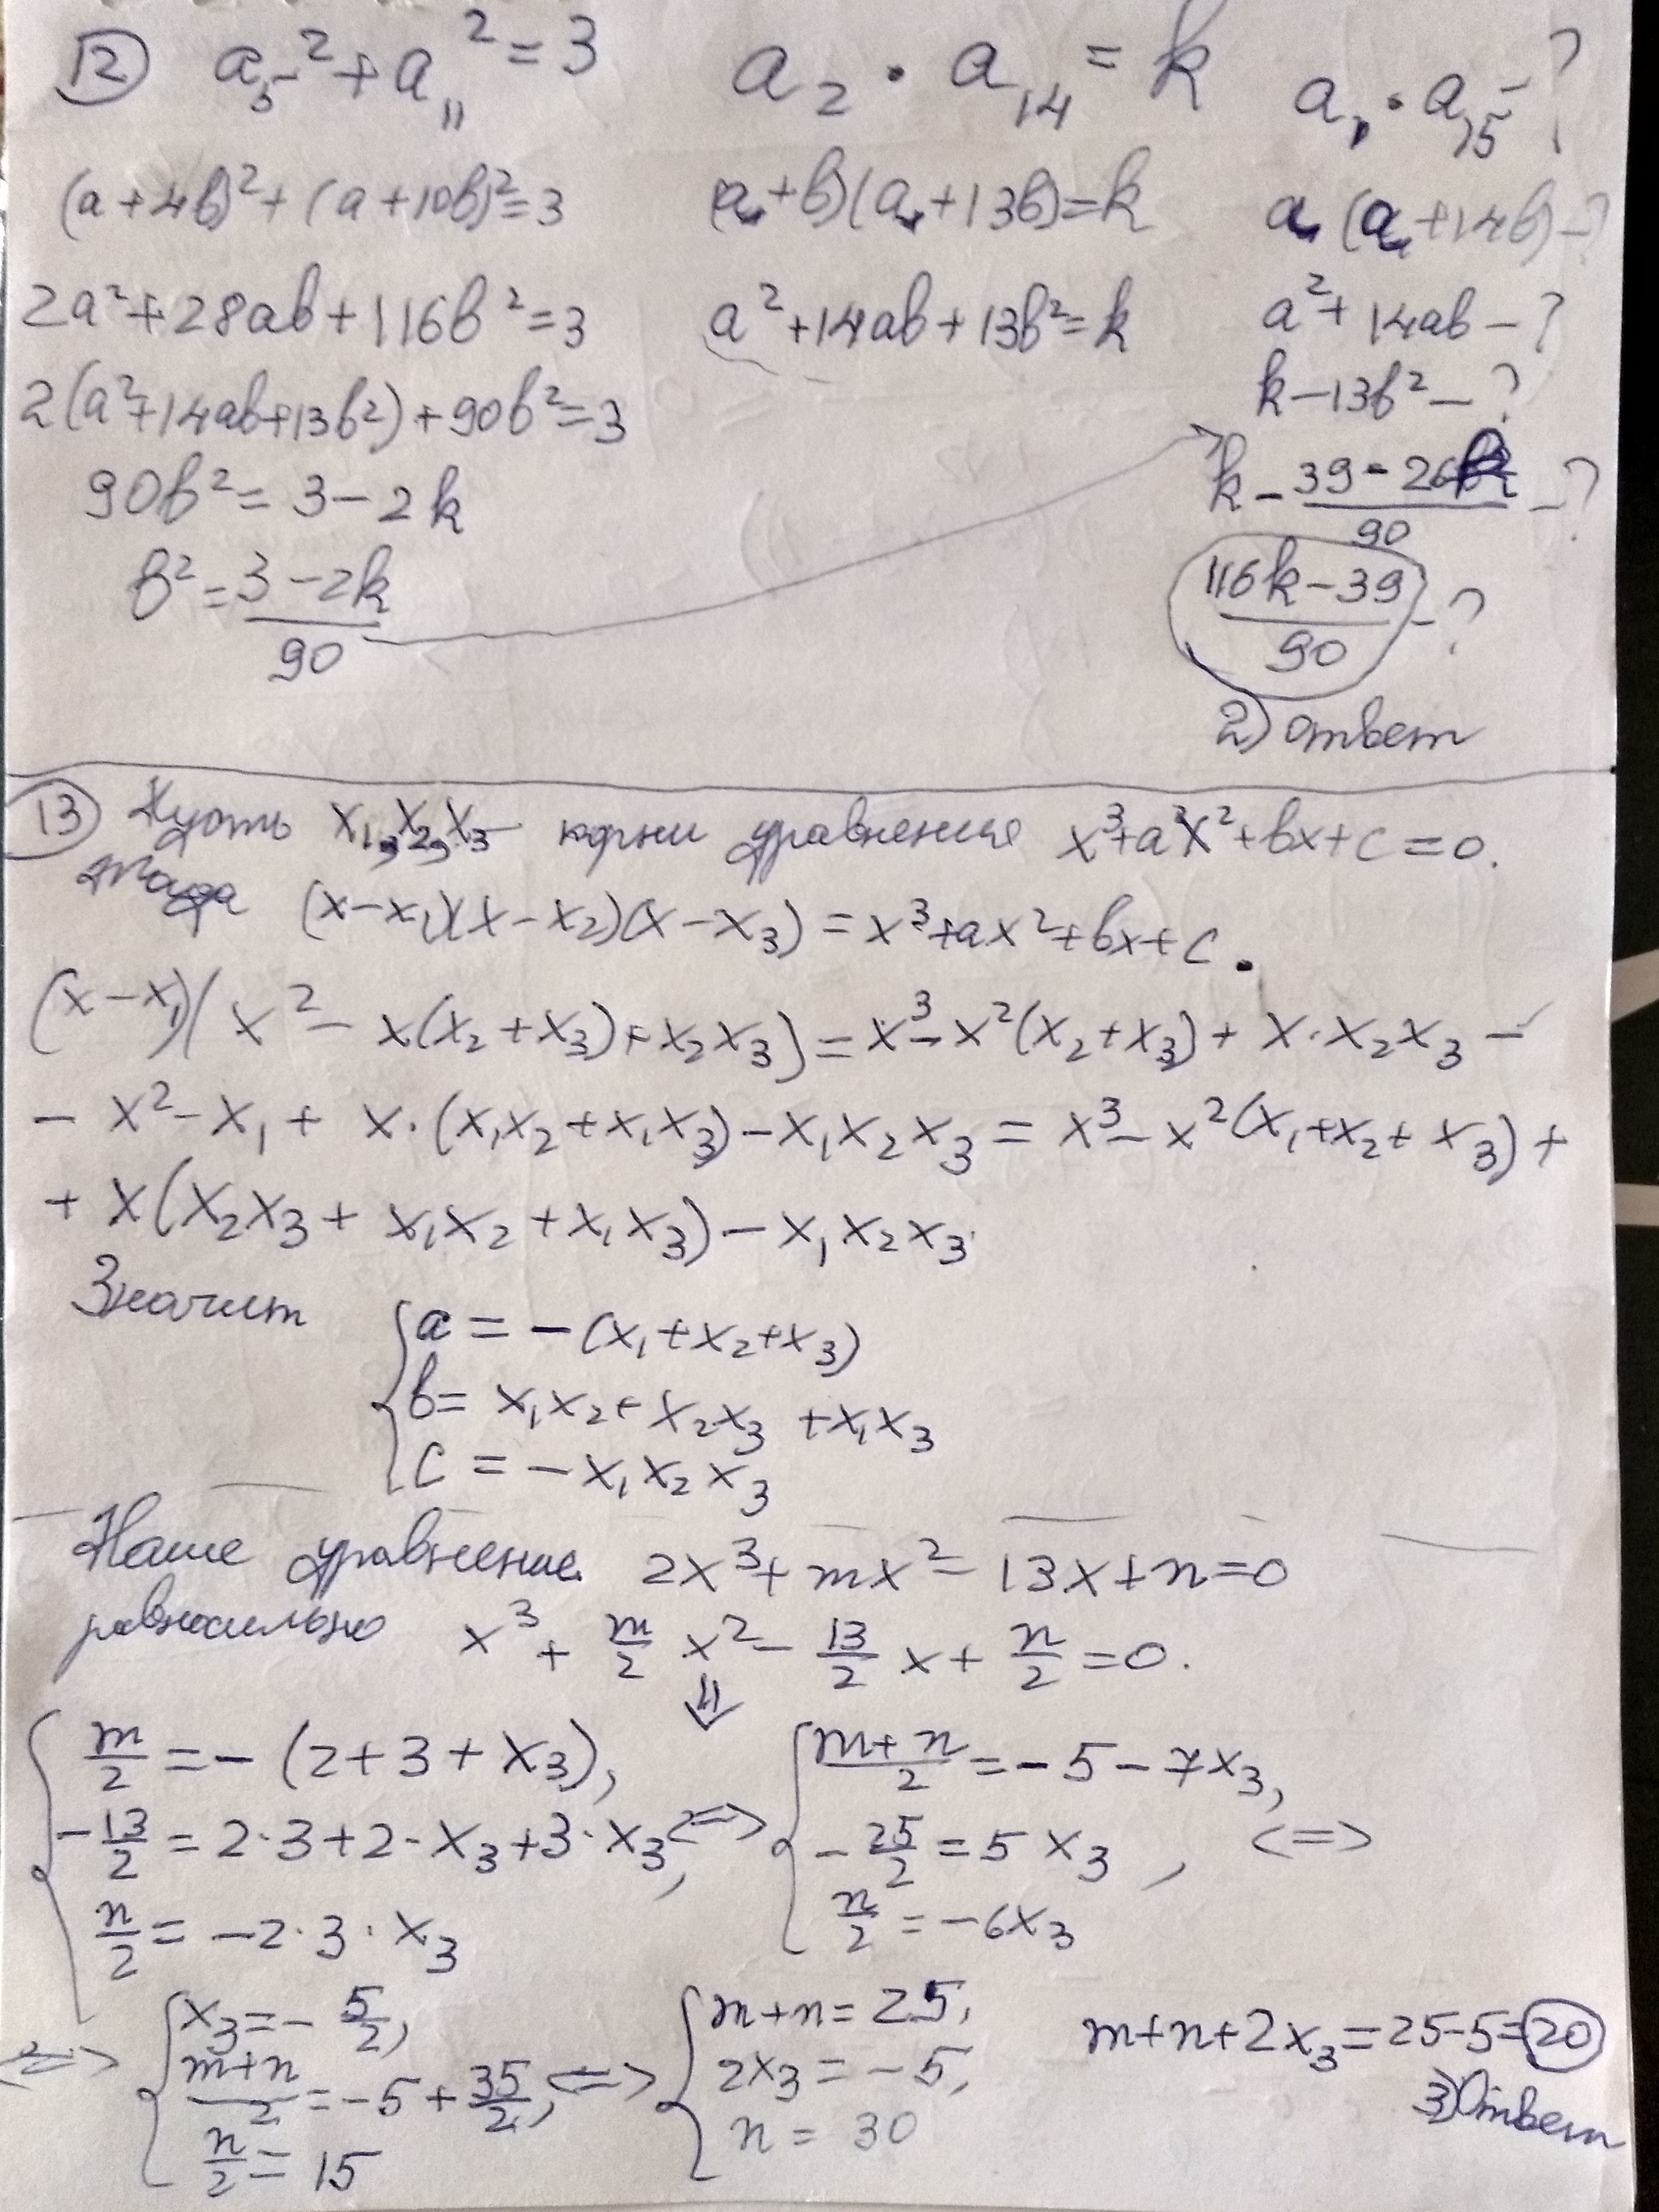 12 a₅² + a₁₁² = 3 a₂ · a₁₄ = k a₁ · a₁₅ - ?
(a + 4b)² + (a + 10b)² = 3 (a + b)(a + 13b) = k a (a + 14b) - ?
2a² + 28ab + 116b² = 3 a² + 14ab + 13b² = k a² + 14ab - ?
2(a² + 14ab + 13b²) + 90b² = 3 k - 13b² - ?
90b² = 3 - 2k k - (39 - 26k)/90 - ?
b² = (3 - 2k)/90 (116k - 39)/90 - ?
2) ответ
13 Пусть x₁, x₂, x₃ - корни уравнения x³ + a²x² + bx + c = 0.
тогда (x - x₁)(x - x₂)(x - x₃) = x³ + ax² + bx + c.
(x - x₁)(x² - x(x₂ + x₃) + x₂x₃) = x³ - x²(x₂ + x₃) + x · x₂x₃ -
- x² - x₁ + x · (x₁x₂ + x₁x₃) - x₁x₂x₃ = x³ - x²(x₁ + x₂ + x₃) +
+ x(x₂x₃ + x₁x₂ + x₁x₃) - x₁x₂x₃.
Значит { a = -(x₁ + x₂ + x₃)
b = x₁x₂ + x₂x₃ + x₁x₃
c = -x₁x₂x₃
Наше уравнение 2x³ + mx² - 13x + n = 0
равносильно x³ + m/2 x² - 13/2 x + n/2 = 0.
⇓
{ m/2 = -(2 + 3 + x₃), { (m+n)/2 = -5 - 7x₃,
-13/2 = 2·3 + 2·x₃ + 3·x₃, <=> -25/2 = 5x₃, <=>
n/2 = -2·3·x₃ n/2 = -6x₃
{ x₃ = -5/2, { m + n = 25, m + n + 2x₃ = 25 - 5 = 20
<=> (m+n)/2 = -5 + 35/2, <=> 2x₃ = -5, 3) Ответ
n/2 = 15 n = 30